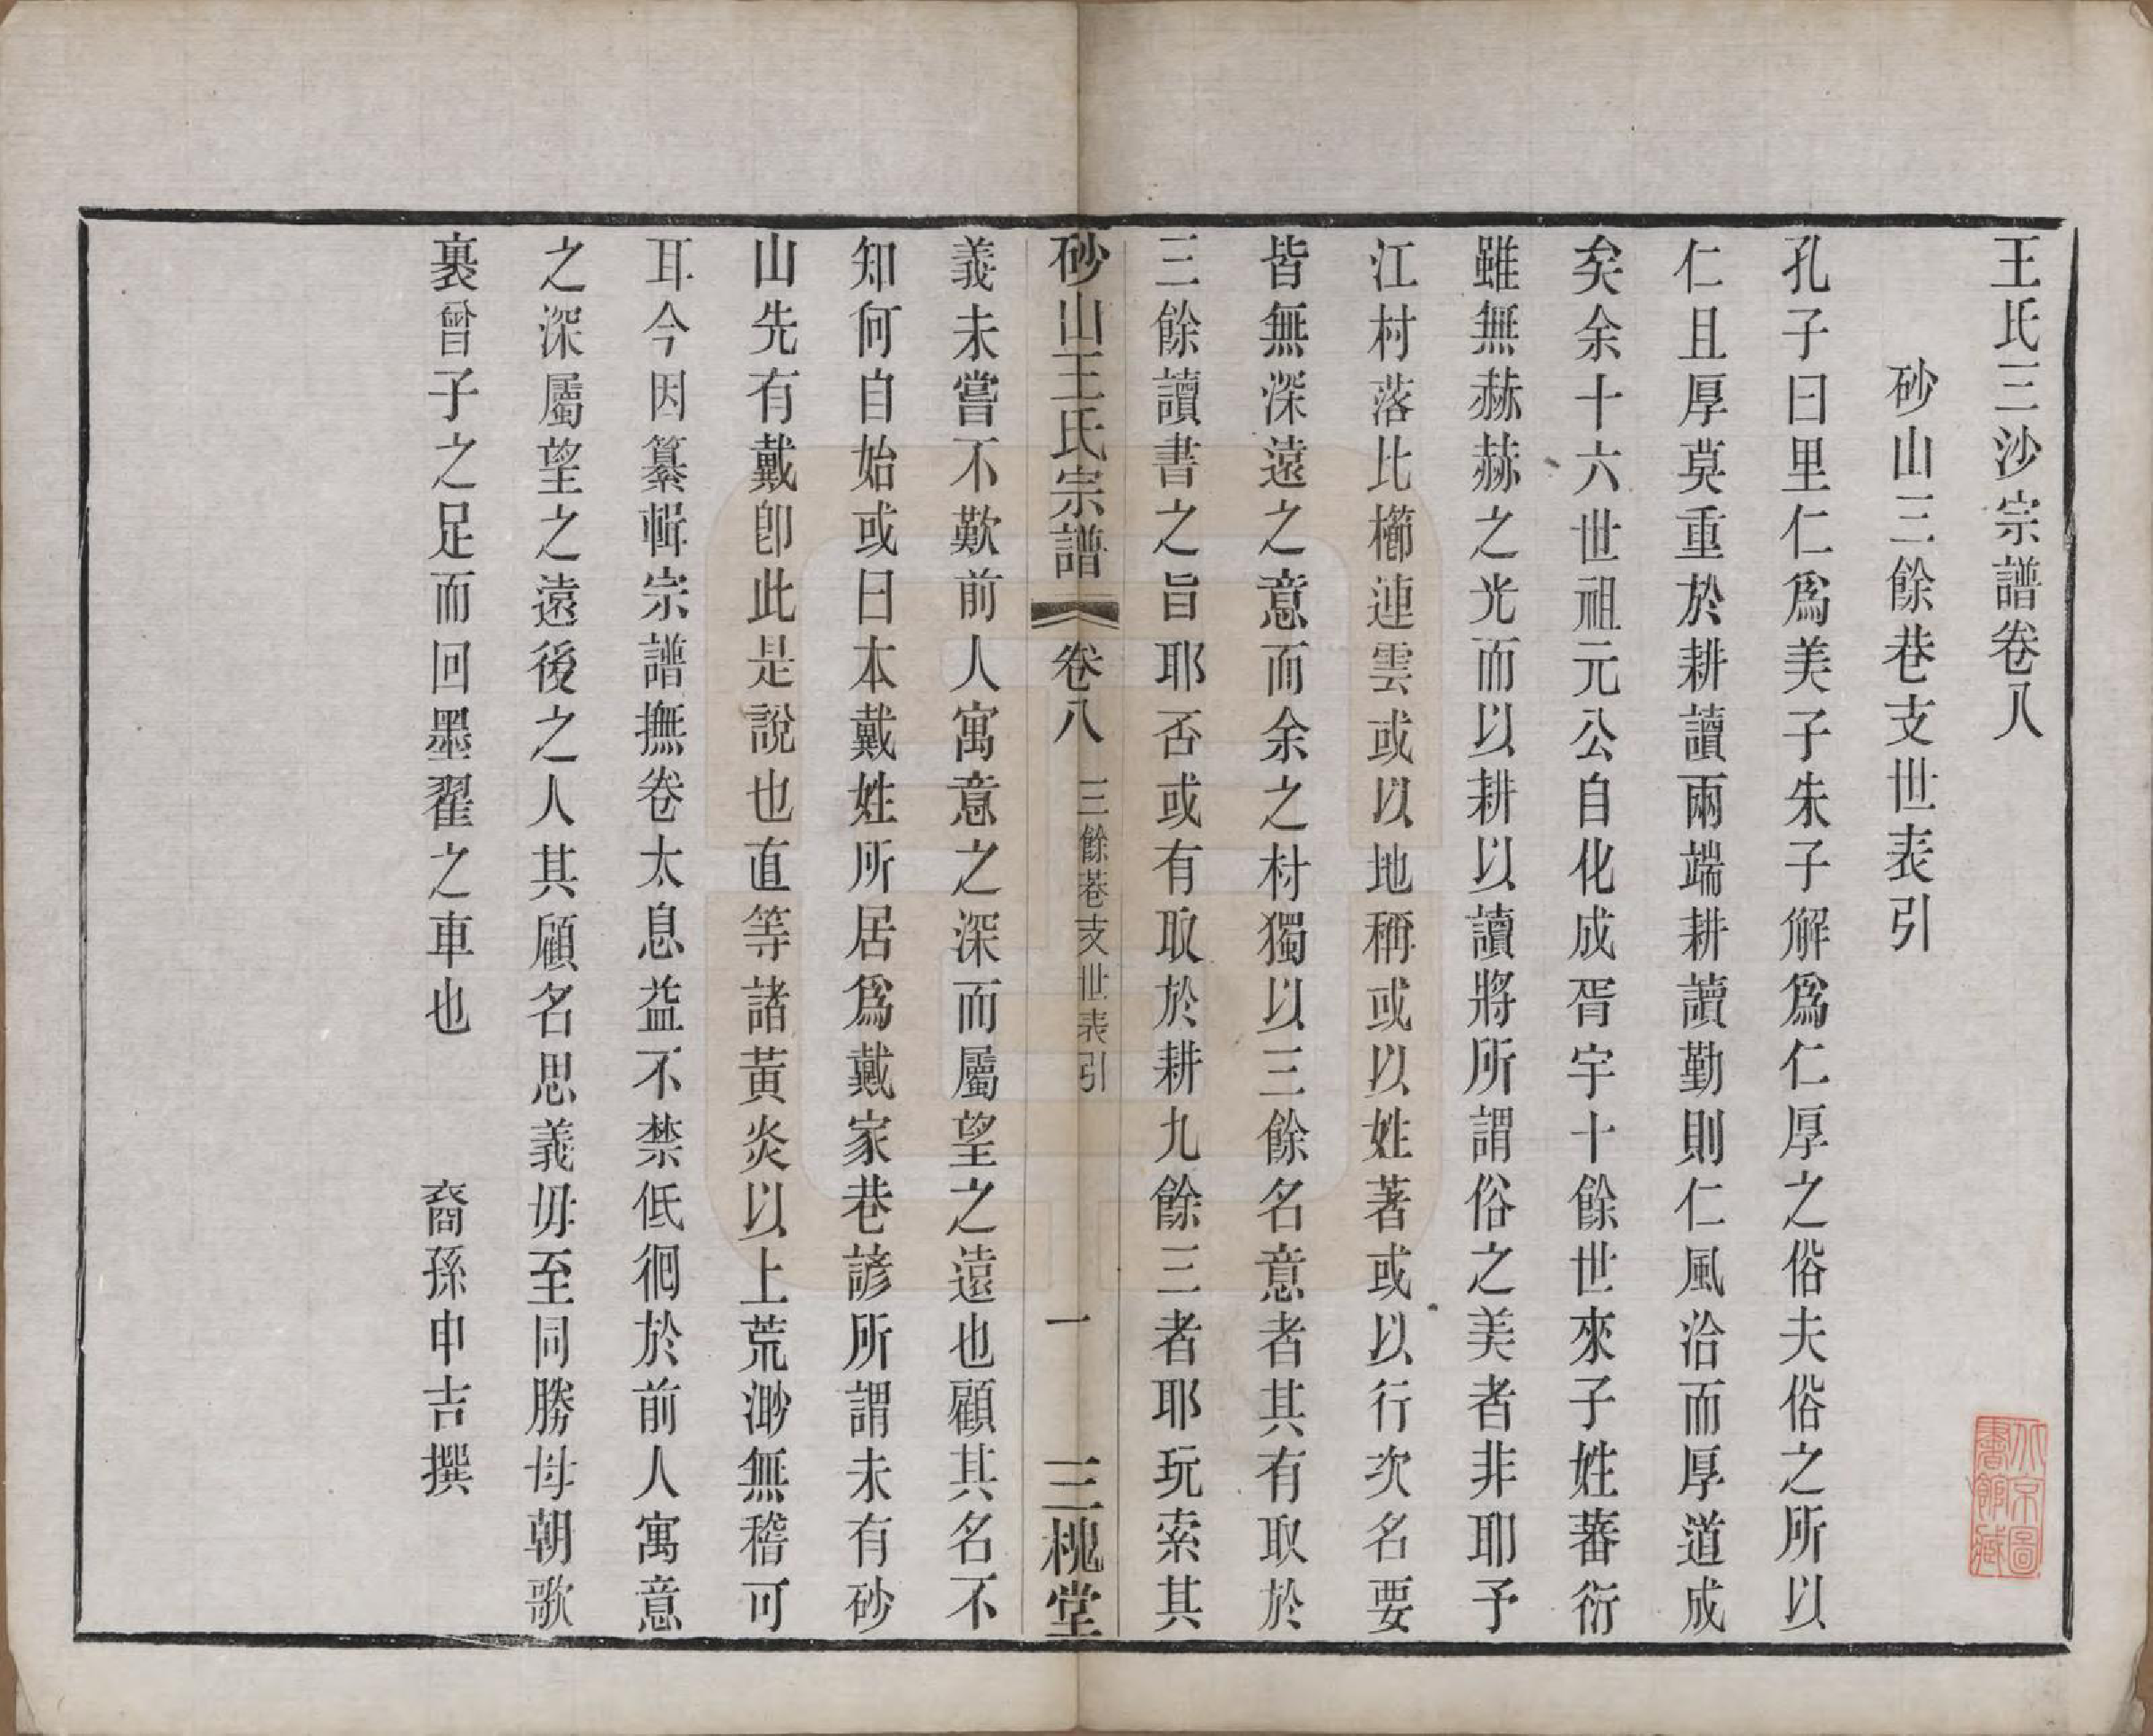 王氏三沙宗譜卷八
砂山三餘巷支世表引
孔子曰里仁爲美子朱子解爲仁厚之俗夫俗之所以
仁且厚莫重於耕讀兩端耕讀勤則仁風洽而厚道成
矣余十六世祖元公自化成胥宇十餘世來子姓蕃衍
雖無赫赫之光而以耕以讀將所謂俗之美者非耶予
江村落比櫛連雲或以地稱或以姓著或以行次名要
皆無深遠之意而余之村獨以三餘名意者其有取於
三餘讀書之旨耶否或有取於耕九餘三者耶玩索其
砂山王氏宗譜 卷八 三餘巷支世表引 一 三槐堂
義未嘗不歎前人寓意之深而屬望之遠也顧其名不
知何自始或曰本戴姓所居爲戴家巷諺所謂未有砂
山先有戴卽此是說也直等諸黃炎以上荒渺無稽可
耳今因纂輯宗譜撫卷太息益不禁低徊於前人寓意
之深屬望之遠後之人其顧名思義毋至同勝母朝歌
裹曾子之足而回墨翟之車也 裔孫申吉撰
北京圖書館藏